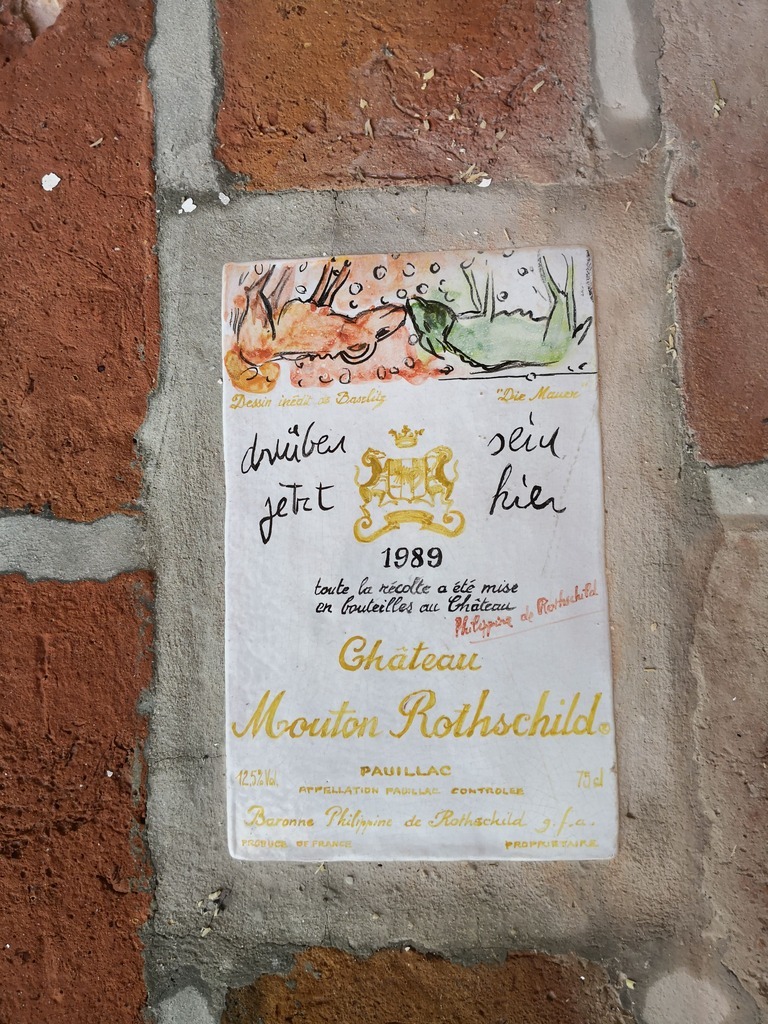 Dessin inédit de Baselitz "Die Mauer"
drüben sein
jetzt hier
1989
toute la récolte a été mise
en bouteilles au Château
Philippine de Rothschild
Château
Mouton Rothschild®
PAUILLAC
12,5% Vol. 75 cl
APPELLATION PAUILLAC CONTROLEE
Baronne Philippine de Rothschild g.f.a.
PRODUCE OF FRANCE PROPRIETAIRE